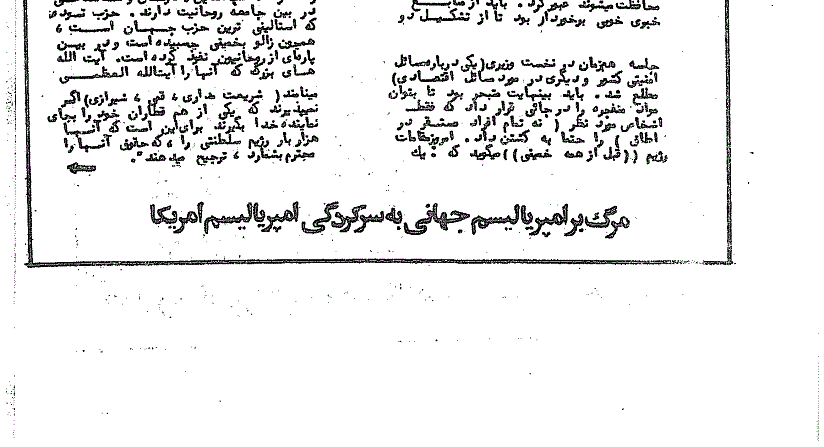 محافظت میشوند عبور کرد. باید از منابع
خبری خوبی برخوردار بود تا از تشکیل دو
جلسه همزمان در نخست وزیری (یکی درباره مسائل
امنیتی کشور و دیگری در مورد مسائل اقتصادی)
مطلع شد. باید بینهایت متبحر بود تا بتوان
مواد منفجره را در جائی قرار داد که فقط
اشخاص مورد نظر ( نه تمام افراد مستقر در
اطاق ) را حتما به کشتن داد. امروز مقامات
رژیم ((قبل از همه خمینی)) میگوید که : یك
در بین جامعه روحانیت دارند. حزب توده
که استالینی ترین حزب جهان است ،
همچون زالو بخمینی چسبیده است و در بین
پاره‌ای از روحانیون نفوذ کرده است. آیت الله
های بزرگ که آنها را آیت‌الله العظمی
مینامند ( شریعت مداری ، قمی ، شیرازی) اگر
نمیپذیرند که یکی از هم قطاران خود را بجای
نماینده خدا بگیرند برای این است که آنها
هزار بار رژیم سلطنتی را ، که حقوق آنها را
محترم بشمارد ، ترجیح میدهند".
مرگ بر امپریالیسم جهانی به سرکردگی امپریالیسم امریکا